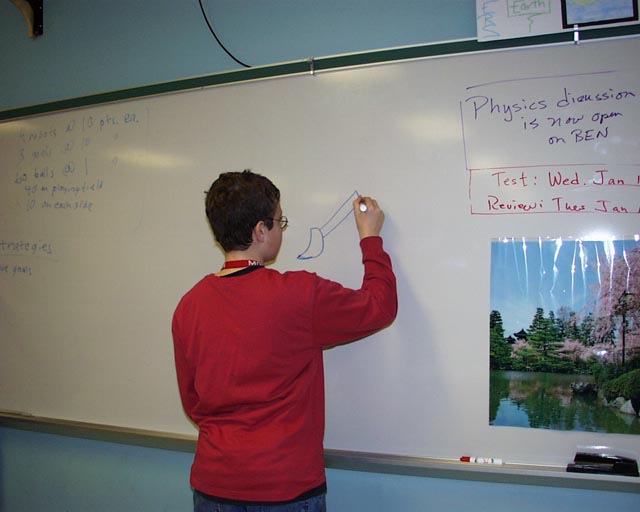 4 robots @ 10 pts. ea.
3 goals @ 10 "
60 balls @ 1 "
40 on playing field
10 on each side
strategies
Earth
Physics discussion
is now open
on BEN
Test: Wed. Jan 1
Review: Tues Jan